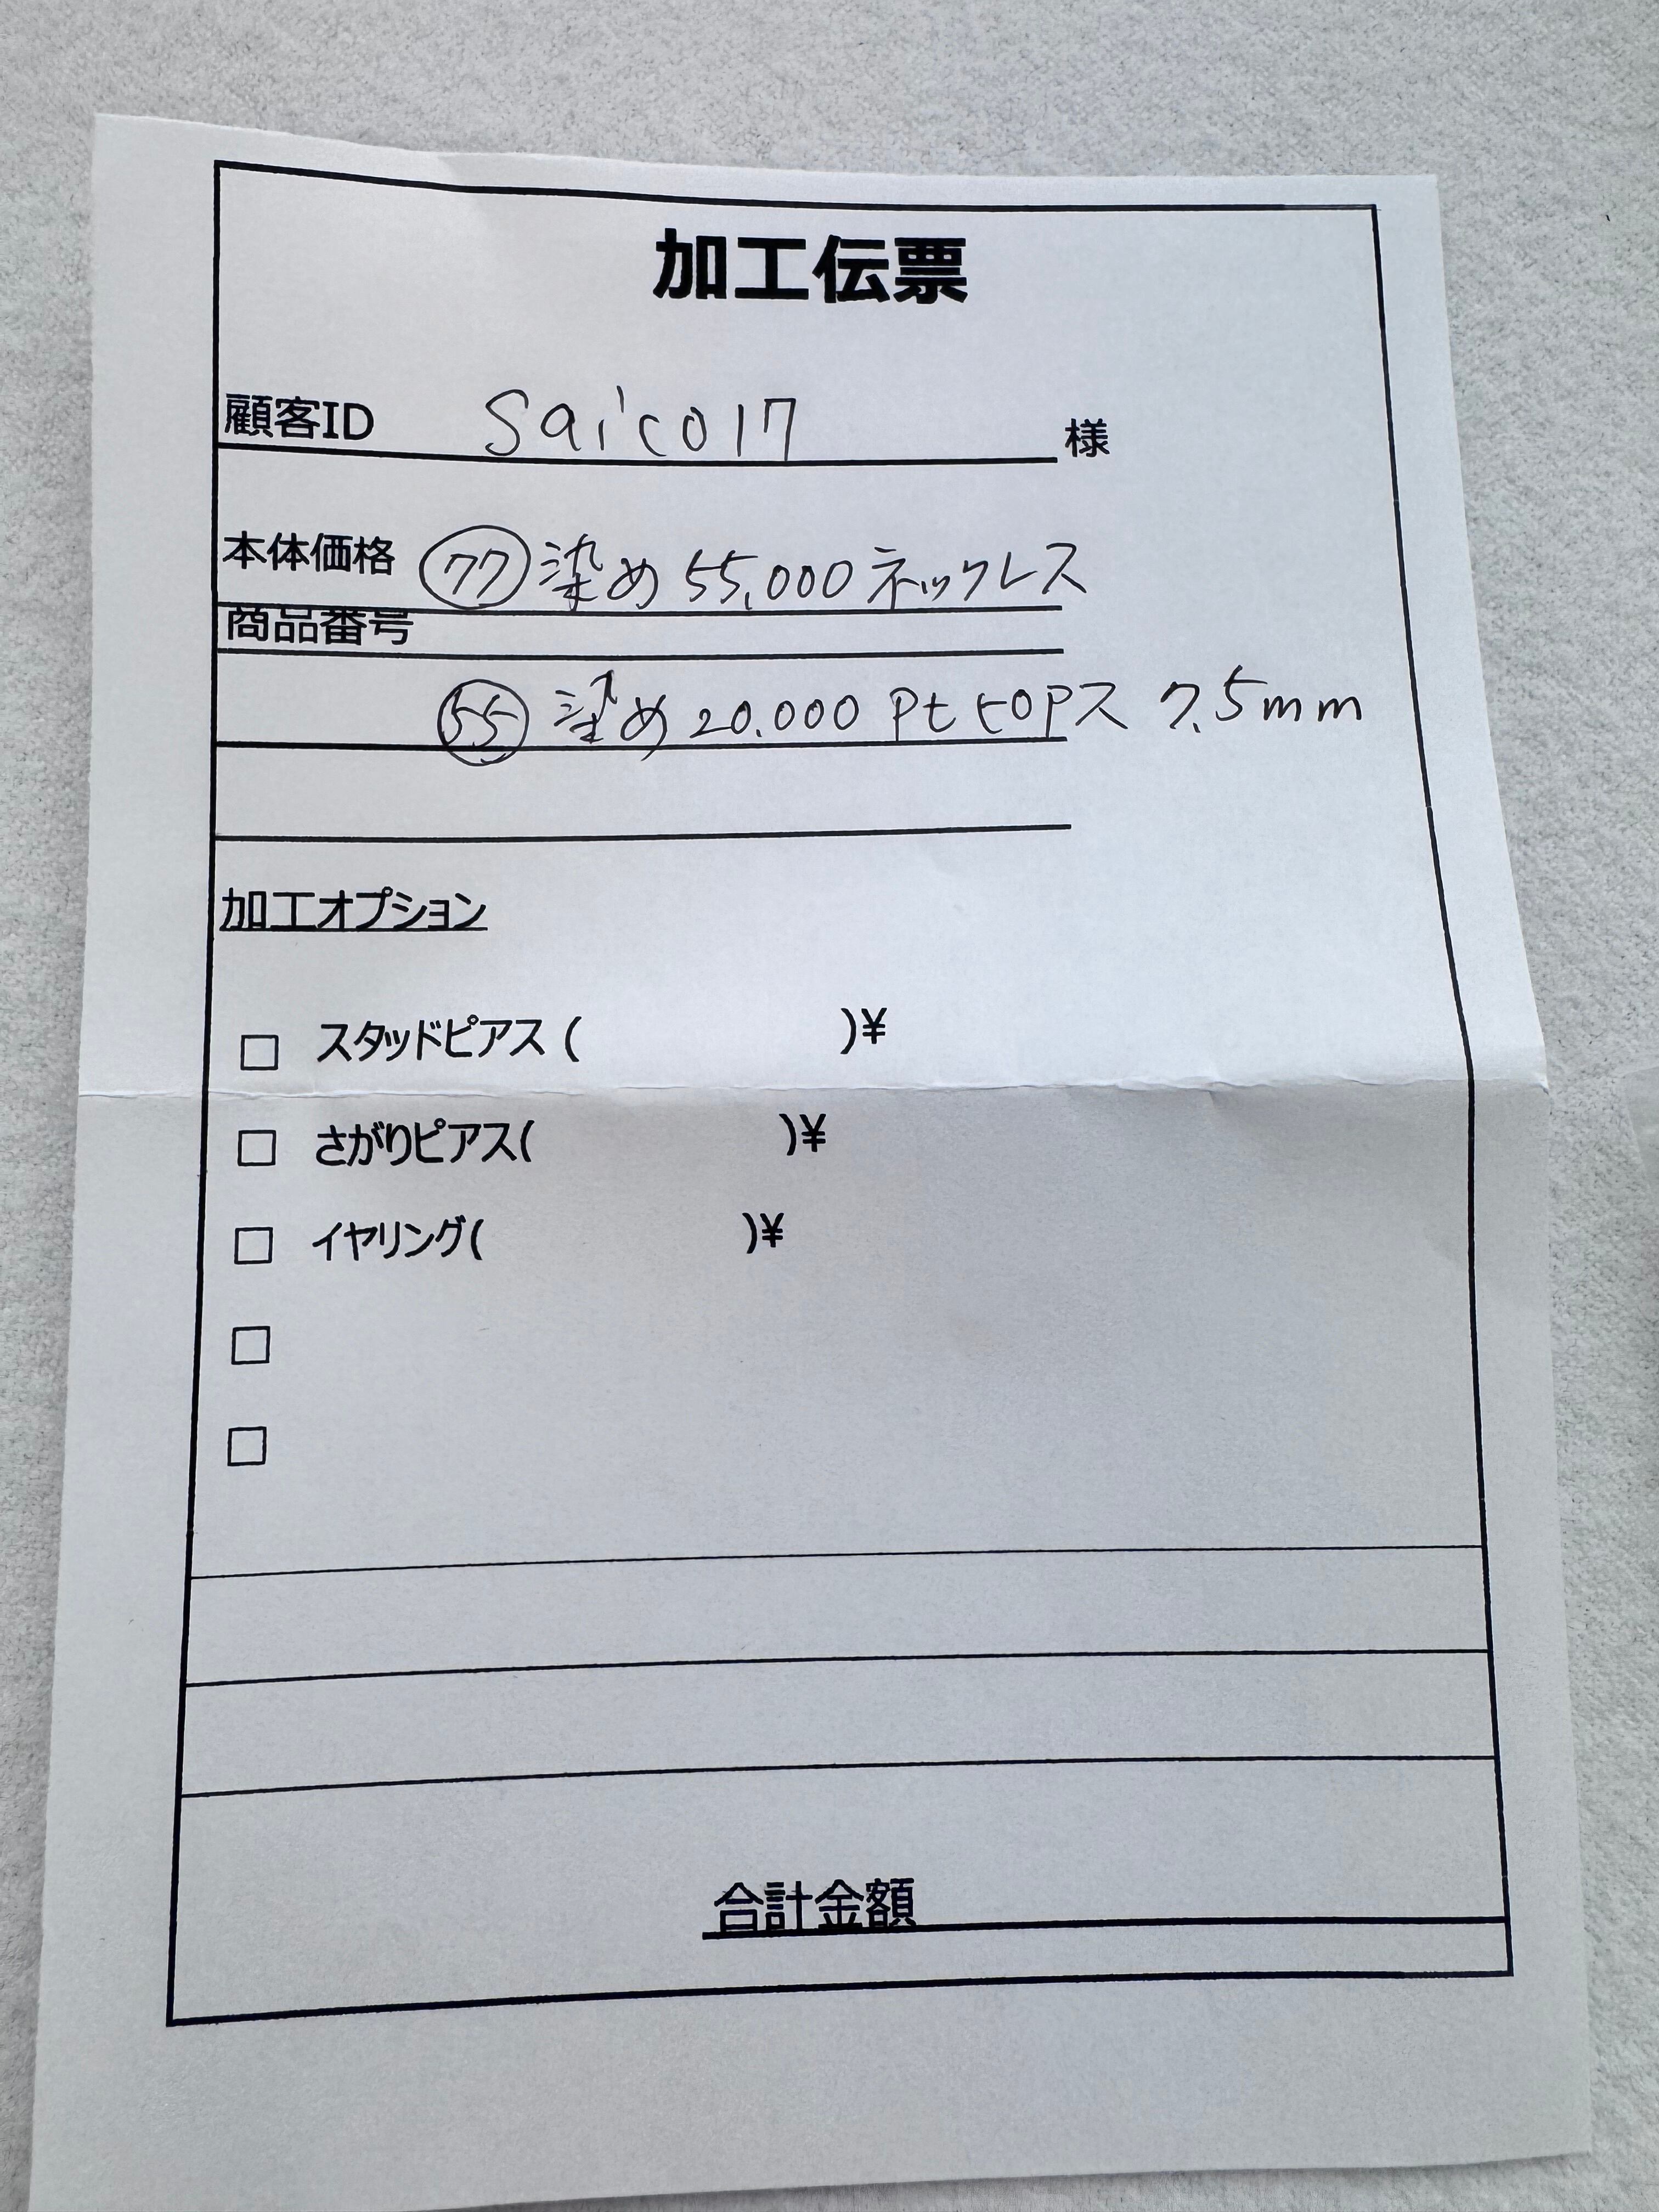 加工伝票
顧客ID saico17 様
本体価格 77 染め 55,000 ネックレス
商品番号
55 染め 20.000 Pt 7.5mm
加工オプション
□ スタッドピアス ( )¥
□ さがりピアス( )¥
□ イヤリング( )¥
□
□
合計金額